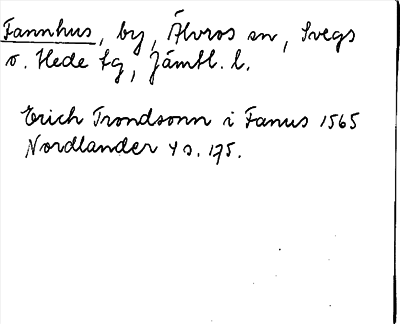 Fannhus, by, Älvros sn, Svegs
o. Hede tg, Jämtl. l.
Erich Trondsonn i Fanus 1565
Nordlander 4 s. 175.